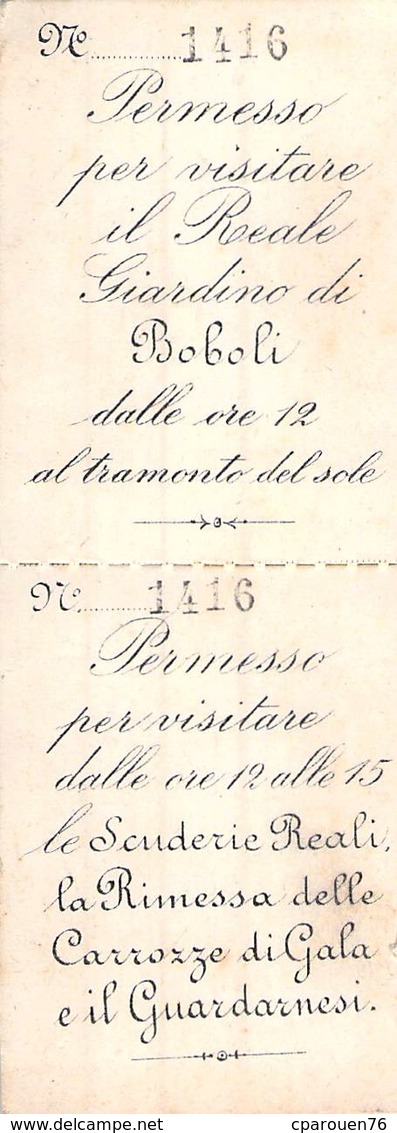 N. 1416
Permesso
per visitare
il Reale
Giardino di
Boboli
dalle ore 12
al tramonto del sole
N. 1416
Permesso
per visitare
dalle ore 12 alle 15
le Scuderie Reali,
la Rimessa delle
Carrozze di Gala
e il Guardarnesi.
delcampe.net cparouen76